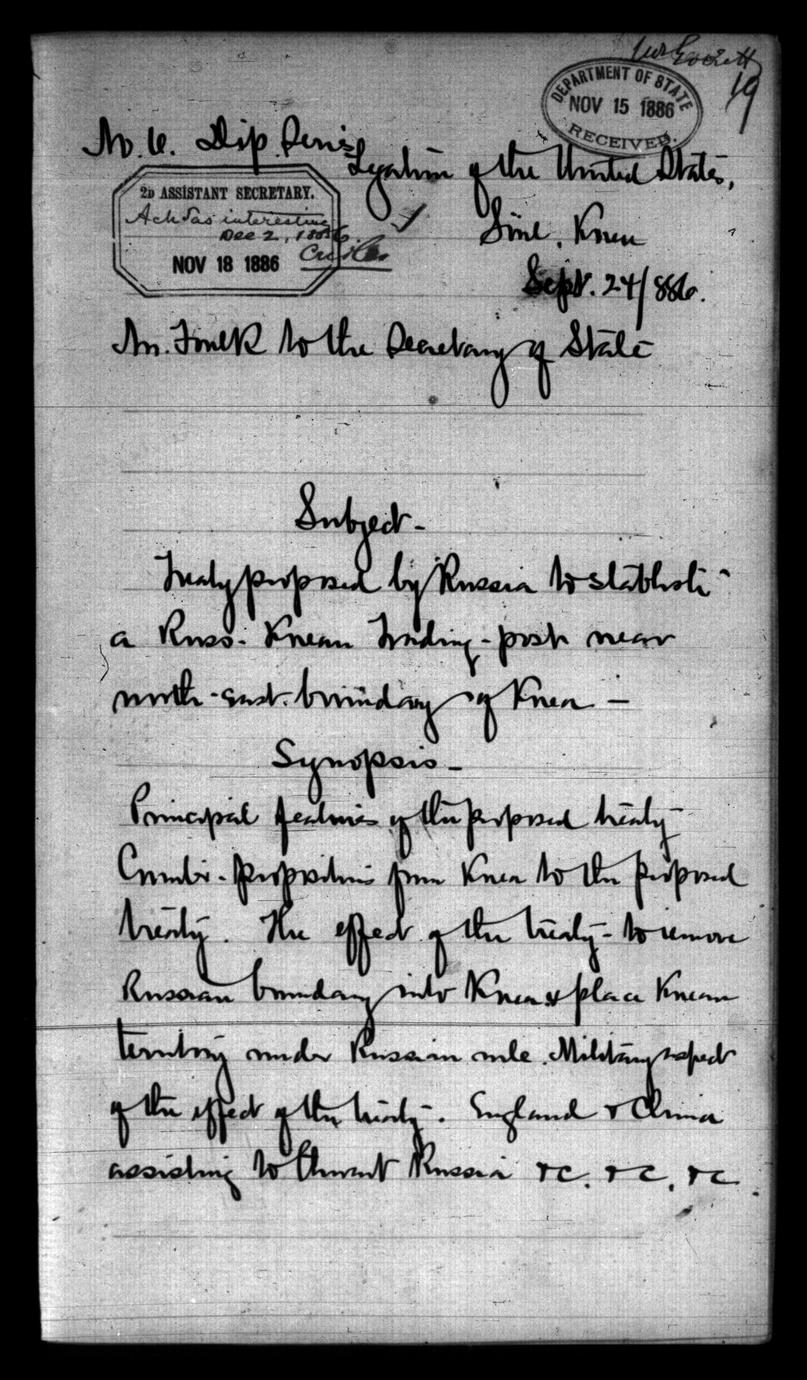 Mr Everett
19
DEPARTMENT OF STATE
NOV 15 1886
RECEIVED.
No. 6. Dip. Series
Legation of the United States,
2D ASSISTANT SECRETARY.
Ack as interesting
Dec 2, 1886.
NOV 18 1886
Söul, Korea
Sept. 24/886.
Mr. Foulk to the Secretary of State
Subject-
Treaty proposed by Russia to establish
a Russo-Korean Trading-post near
north-east boundary of Korea -
Synopsis-
Principal features of the proposed treaty
Counter-propositions from Korea to the proposed
treaty. The effect of the treaty- to remove
Russian boundary into Korea & place Korean
territory under Russian rule. Military aspect
of the effect of the treaty-. England & China
assisting to thwart Russia &c. &c, &c